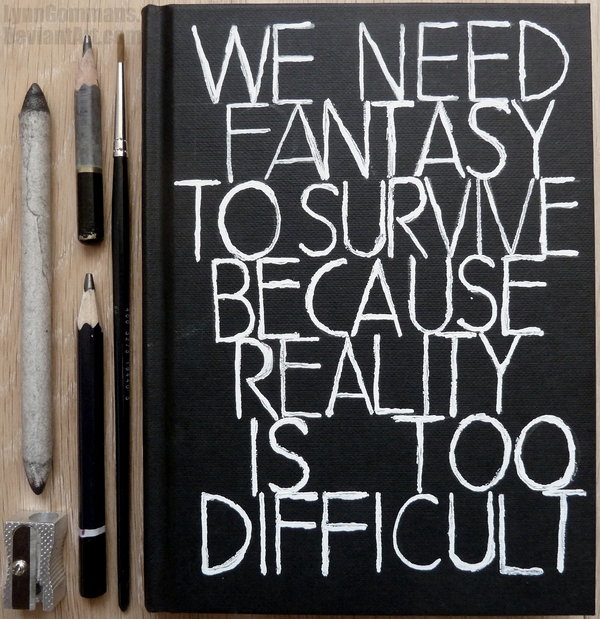 LynnGommans.
DeviantArt.com
WE NEED
FANTASY
TO SURVIVE
BECAUSE
REALITY
IS TOO
DIFFICULT